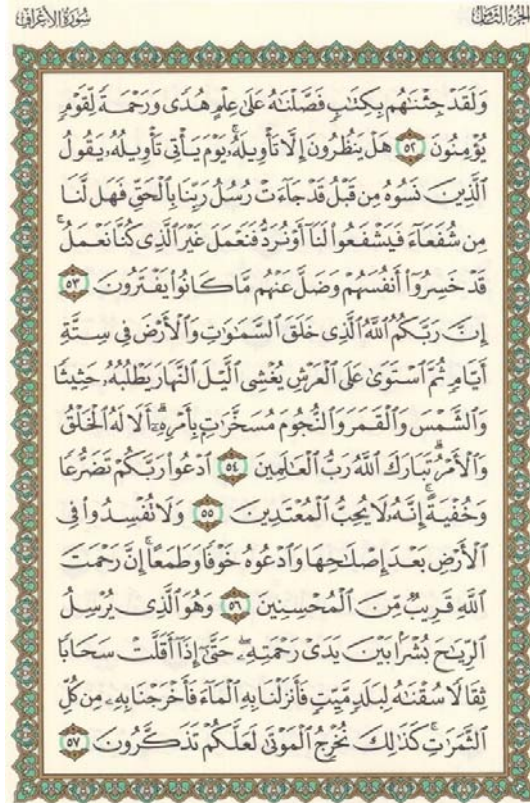 الجزء الثامن
سورة الأعراف
وَلَقَدْ جِئْنَٰهُم بِكِتَٰبٍ فَصَّلْنَٰهُ عَلَىٰ عِلْمٍ هُدًى وَرَحْمَةً لِّقَوْمٍ
يُؤْمِنُونَ ٥٢ هَلْ يَنظُرُونَ إِلَّا تَأْوِيلَهُۥۚ يَوْمَ يَأْتِى تَأْوِيلُهُۥ يَقُولُ
ٱلَّذِينَ نَسُوهُ مِن قَبْلُ قَدْ جَآءَتْ رُسُلُ رَبِّنَا بِٱلْحَقِّ فَهَل لَّنَا
مِن شُفَعَآءَ فَيَشْفَعُوا۟ لَنَآ أَوْ نُرَدُّ فَنَعْمَلَ غَيْرَ ٱلَّذِى كُنَّا نَعْمَلُۚ
قَدْ خَسِرُوٓا۟ أَنفُسَهُمْ وَضَلَّ عَنْهُم مَّا كَانُوا۟ يَفْتَرُونَ ٥٣
إِنَّ رَبَّكُمُ ٱللَّهُ ٱلَّذِى خَلَقَ ٱلسَّمَٰوَٰتِ وَٱلْأَرْضَ فِى سِتَّةِ
أَيَّامٍ ثُمَّ ٱسْتَوَىٰ عَلَى ٱلْعَرْشِ يُغْشِى ٱلَّيْلَ ٱلنَّهَارَ يَطْلُبُهُۥ حَثِيثًا
وَٱلشَّمْسَ وَٱلْقَمَرَ وَٱلنُّجُومَ مُسَخَّرَٰتٍۭ بِأَمْرِهِۦٓۗ أَلَا لَهُ ٱلْخَلْقُ
وَٱلْأَمْرُۗ تَبَارَكَ ٱللَّهُ رَبُّ ٱلْعَٰلَمِينَ ٥٤ ٱدْعُوا۟ رَبَّكُمْ تَضَرُّعًا
وَخُفْيَةًۚ إِنَّهُۥ لَا يُحِبُّ ٱلْمُعْتَدِينَ ٥٥ وَلَا تُفْسِدُوا۟ فِى
ٱلْأَرْضِ بَعْدَ إِصْلَٰحِهَا وَٱدْعُوهُ خَوْفًا وَطَمَعًاۚ إِنَّ رَحْمَتَ
ٱللَّهِ قَرِيبٌ مِّنَ ٱلْمُحْسِنِينَ ٥٦ وَهُوَ ٱلَّذِى يُرْسِلُ
ٱلرِّيَٰحَ بُشْرًۢا بَيْنَ يَدَىْ رَحْمَتِهِۦۖ حَتَّىٰٓ إِذَآ أَقَلَّتْ سَحَابًا
ثِقَالًا سُقْنَٰهُ لِبَلَدٍ مَّيِّتٍ فَأَنزَلْنَا بِهِ ٱلْمَآءَ فَأَخْرَجْنَا بِهِۦ مِن كُلِّ
ٱلثَّمَرَٰتِۚ كَذَٰلِكَ نُخْرِجُ ٱلْمَوْتَىٰ لَعَلَّكُمْ تَذَكَّرُونَ ٥٧